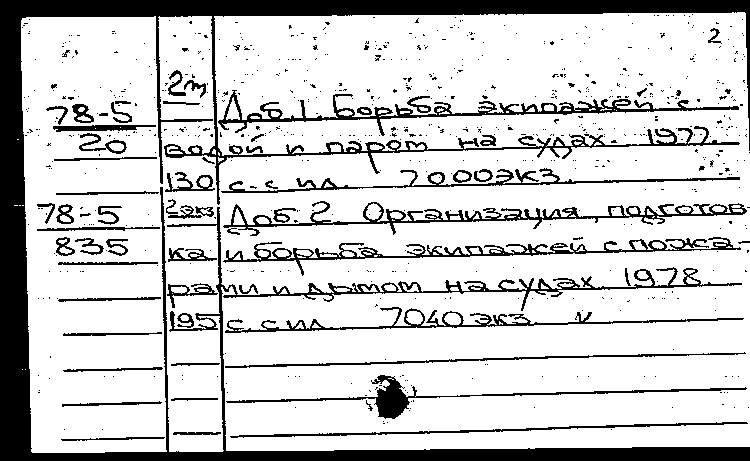 2
2т
78-5 Доб. 1. Борьба экипажей с
20 водой и паром на судах. 1977.
130 с. с ил. 7000 экз.
78-5 2 экз Доб. 2. Организация, подготов-
835 ка и борьба экипажей с пожа-
рами и дымом на судах. 1978.
195 с. с ил. 7040 экз.